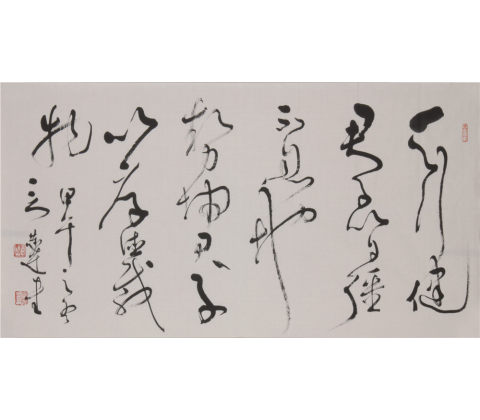 天行健
君子以自強
不息地
勢坤君子
以厚德載
物
甲午之冬